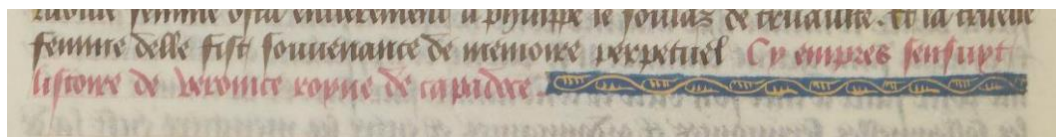 femme osta entierement a phelippe le soulas de cruaulte. Et la cruelle
femme delle fist souvenance de memoire perpetuel Cy empres sensuyt
listoire de beronice royne de capadoce.